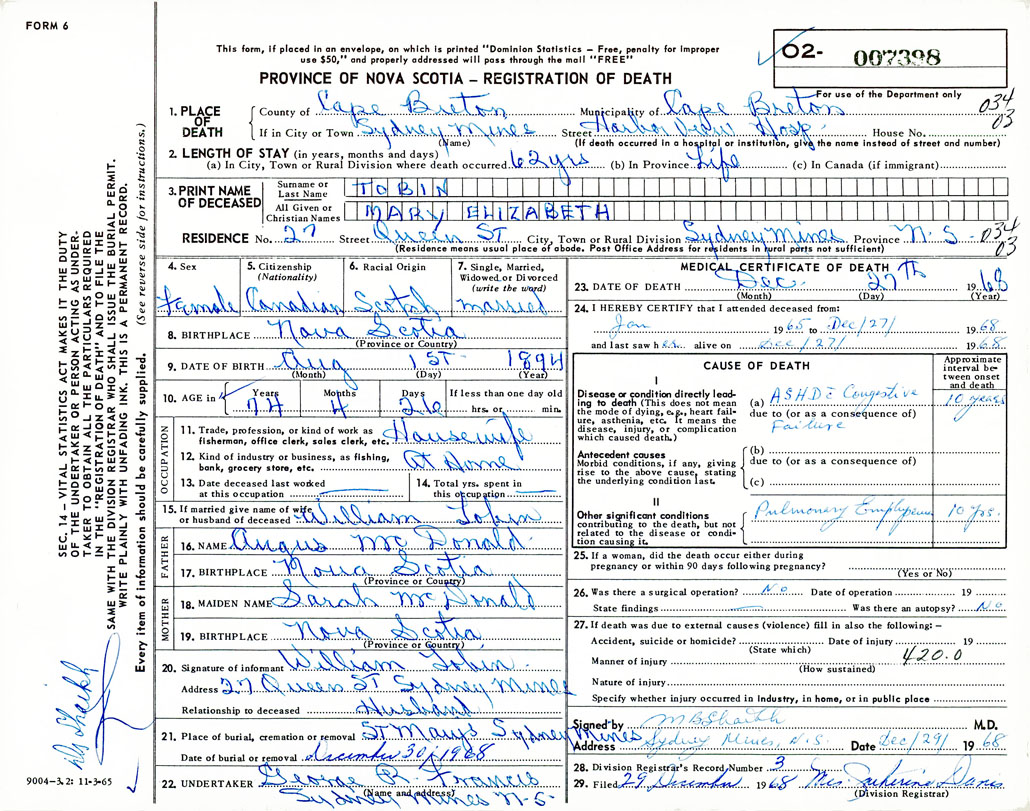 FORM 6
This form, if placed in an envelope, on which is printed "Dominion Statistics – Free, penalty for improper
use $50," and properly addressed will pass through the mail "FREE"
PROVINCE OF NOVA SCOTIA – REGISTRATION OF DEATH
02- 007398
For use of the Department only
034
03
1. PLACE OF DEATH County of Cape Breton Municipality of Cape Breton
If in City or Town Sydney Mines Street Harbor View Hosp. House No.
(Name) (If death occurred in a hospital or institution, give the name instead of street and number)
2. LENGTH OF STAY (in years, months and days)
(a) In City, Town or Rural Division where death occurred 62 yrs (b) In Province Life (c) In Canada (if immigrant)
3. PRINT NAME OF DECEASED
Surname or Last Name TOBIN
All Given or Christian Names MARY ELIZABETH
RESIDENCE No. 27 Street Queen ST City, Town or Rural Division Sydney Mines Province N.S-
034
03
(Residence means usual place of abode. Post Office Address for residents in rural parts not sufficient)
4. Sex Female
5. Citizenship (Nationality) Canadian
6. Racial Origin Scotch
7. Single, Married, Widowed or Divorced (write the word) married
8. BIRTHPLACE Nova Scotia
(Province or Country)
9. DATE OF BIRTH Aug 1ST 1894
(Month) (Day) (Year)
10. AGE in Years 74 Months 4 Days 26 If less than one day old
hrs. or min.
OCCUPATION
11. Trade, profession, or kind of work as fisherman, office clerk, sales clerk, etc. Housewife
12. Kind of industry or business, as fishing, bank, grocery store, etc. At Home
13. Date deceased last worked at this occupation
14. Total yrs. spent in this occupation
15. If married give name of wife or husband of deceased William Tobin
FATHER
16. NAME Angus McDonald
17. BIRTHPLACE Nova Scotia
(Province or Country)
MOTHER
18. MAIDEN NAME Sarah McDonald
19. BIRTHPLACE Nova Scotia
(Province or Country)
20. Signature of informant William Tobin
Address 27 Queen ST Sydney Mines
Relationship to deceased Husband
21. Place of burial, cremation or removal St Marys Sydney Mines
Date of burial or removal December 30/1968
22. UNDERTAKER George R. Francis
(Name and address)
Sydney Mines N-S-
MEDICAL CERTIFICATE OF DEATH
23. DATE OF DEATH Dec. 27th 1968
(Month) (Day) (Year)
24. I HEREBY CERTIFY that I attended deceased from:
Jan 1965 to Dec/27/ 1968
and last saw her alive on Dec/27/ 1968
CAUSE OF DEATH
Approximate interval between onset and death
I
Disease or condition directly leading to death (This does not mean the mode of dying, e.g., heart failure, asthenia, etc. It means the disease, injury, or complication which caused death.)
(a) ASHD č Congestive 10 years
due to (or as a consequence of)
Failure
Antecedent causes
Morbid conditions, if any, giving rise to the above cause, stating the underlying condition last.
(b)
due to (or as a consequence of)
(c)
II
Other significant conditions
contributing to the death, but not related to the disease or condition causing it.
Pulmonary Emphysema 10 yrs.
25. If a woman, did the death occur either during
pregnancy or within 90 days following pregnancy?
(Yes or No)
26. Was there a surgical operation? No Date of operation 19
State findings Was there an autopsy? No
27. If death was due to external causes (violence) fill in also the following: –
Accident, suicide or homicide? Date of injury 19
(State which)
Manner of injury 420.0
(How sustained)
Nature of injury
Specify whether injury occurred in industry, in home, or in public place
Signed by MBShaikh M.D.
Address Sydney Mines, N.S. Date Dec/29/ 1968
28. Division Registrar's Record Number 3
29. Filed 29 December 1968 Mrs. Katherine Davis
(Division Registrar)
SEC. 14 – VITAL STATISTICS ACT MAKES IT THE DUTY
OF THE UNDERTAKER OR PERSON ACTING AS UNDER-
TAKER TO OBTAIN ALL THE PARTICULARS REQUIRED
IN THE "REGISTRATION OF DEATH" AND TO FILE THE
SAME WITH THE DIVISION REGISTRAR WHO SHALL ISSUE THE BURIAL PERMIT.
WRITE PLAINLY WITH UNFADING INK. THIS IS A PERMANENT RECORD.
Every item of information should be carefully supplied. (See reverse side for instructions.)
Shaikh
9004–3.2: 11-3-65